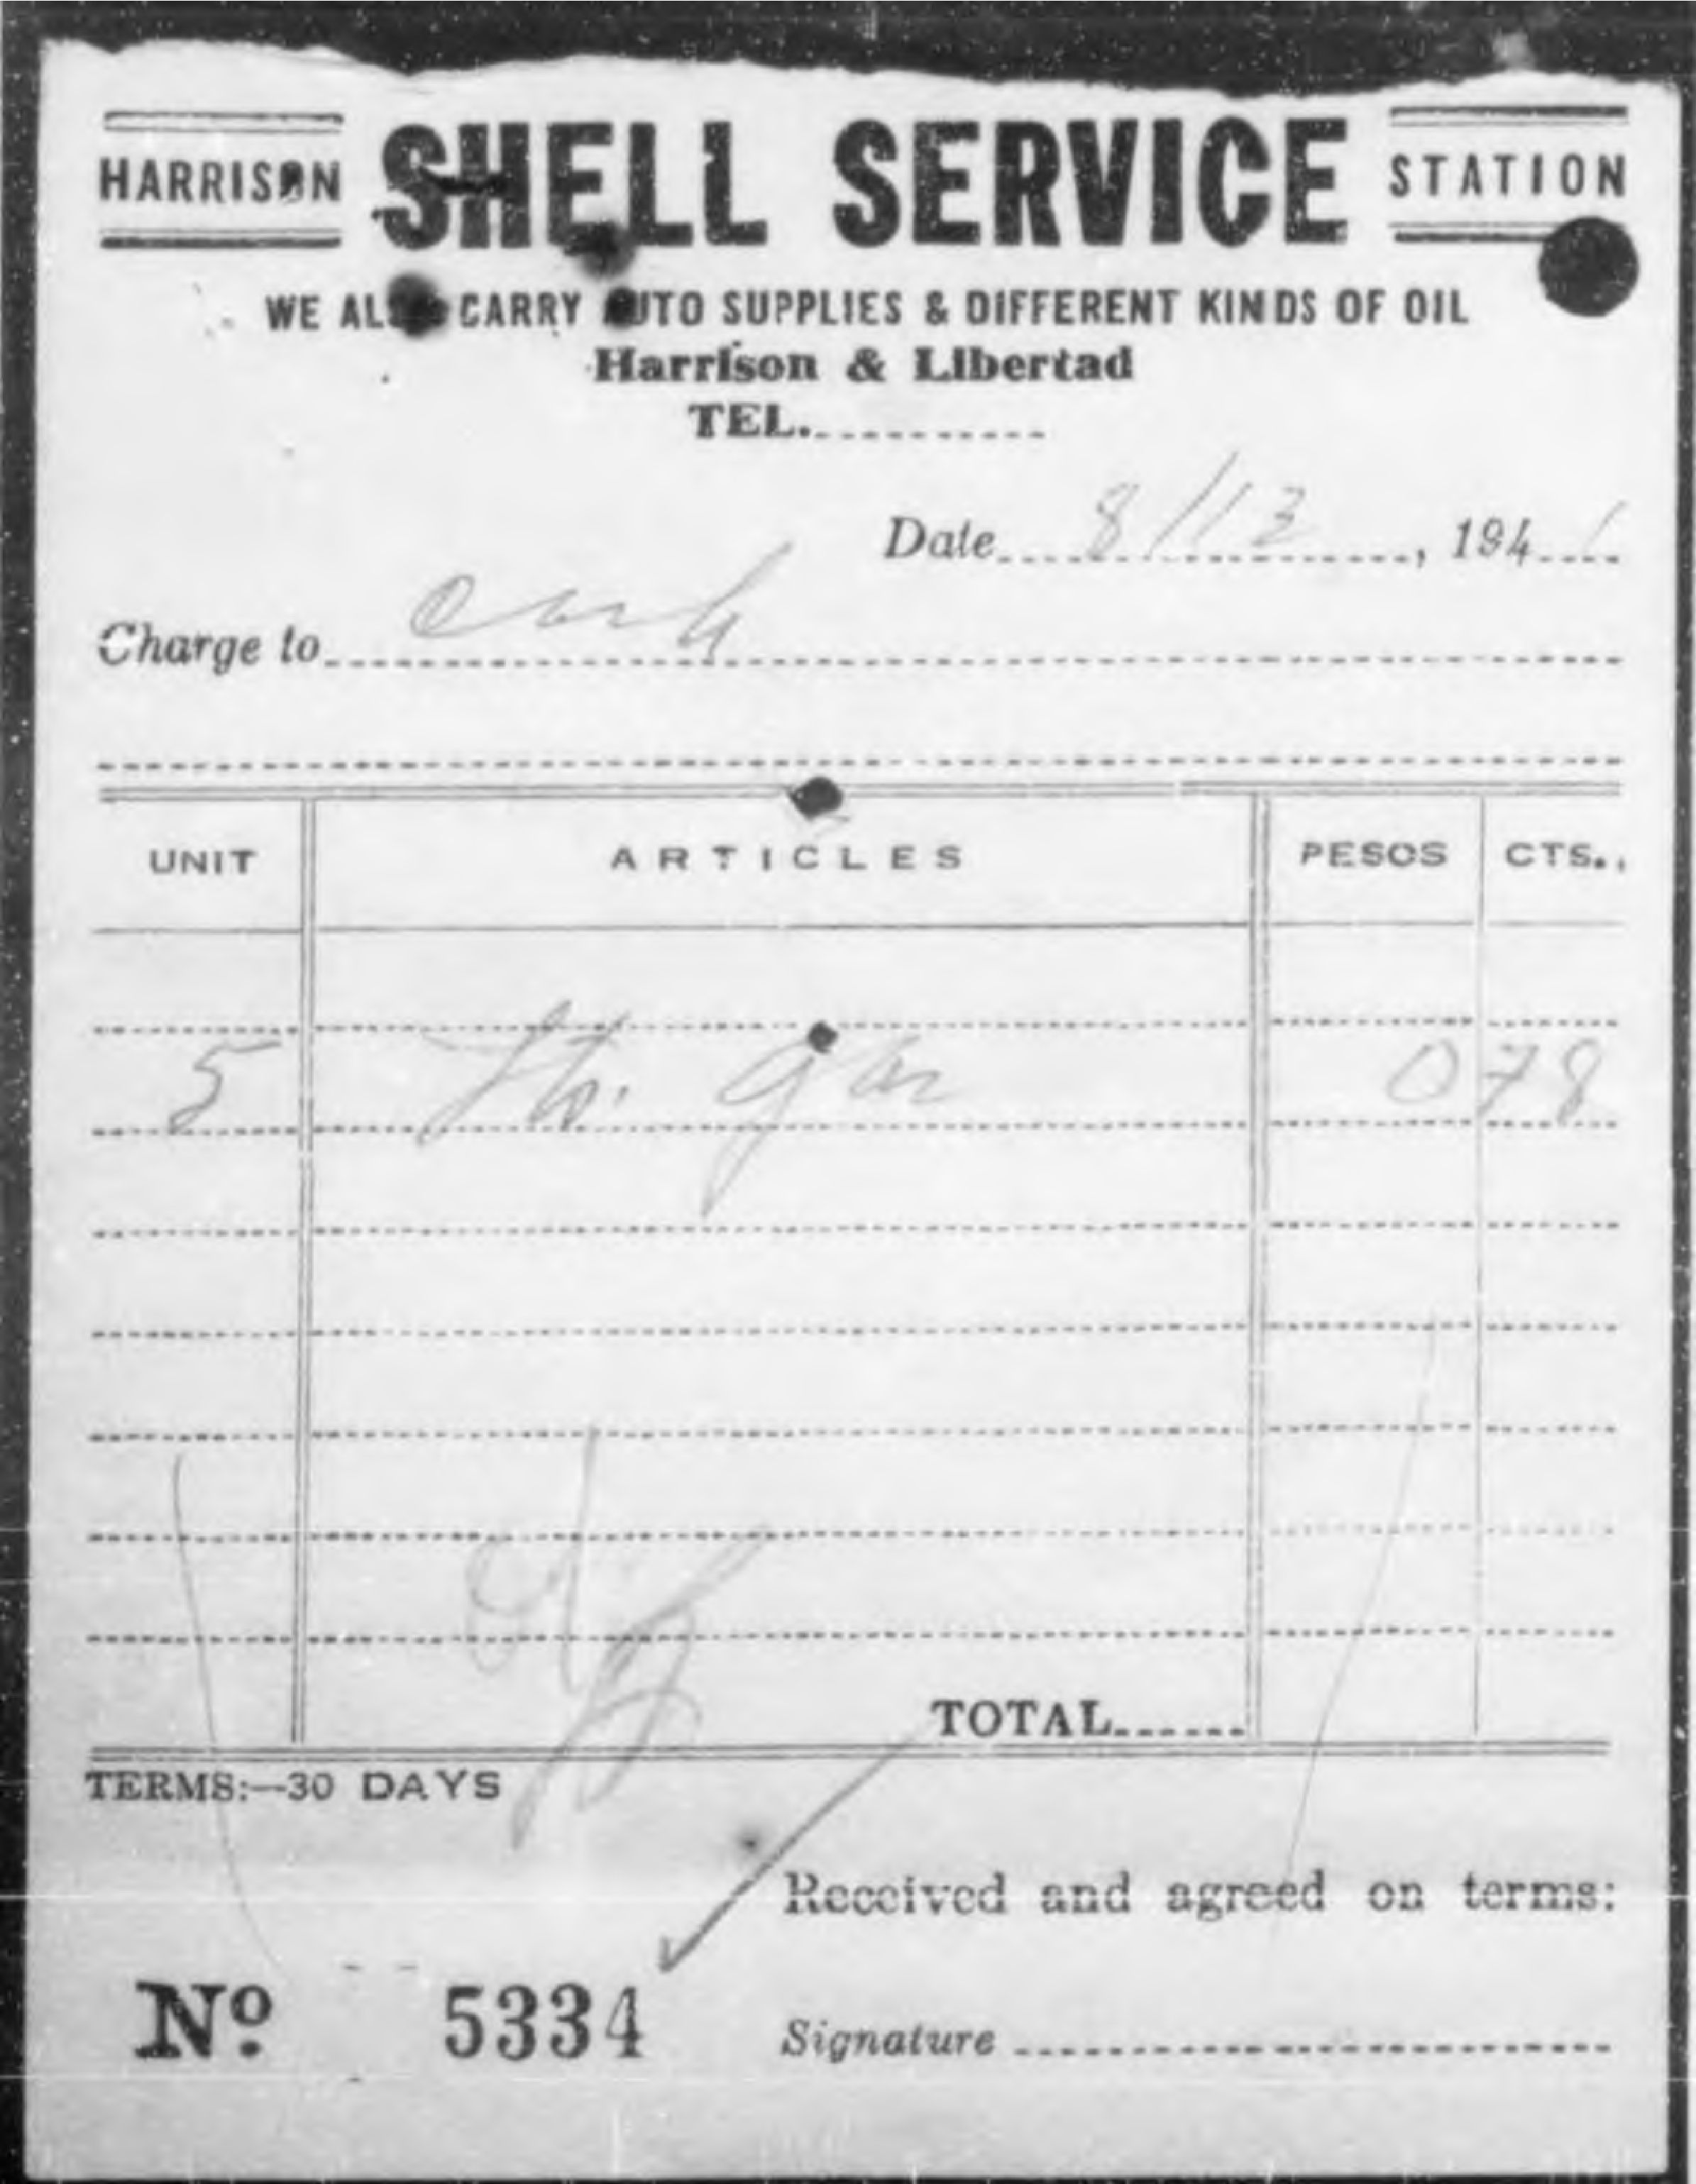 HARRISON SHELL SERVICE STATION
WE ALSO CARRY AUTO SUPPLIES & DIFFERENT KINDS OF OIL
Harrison & Libertad
TEL.
Date 8/13, 1941
Charge to cash
UNIT ARTICLES PESOS CTS.
5 gas 0 78
TOTAL
TERMS:—30 DAYS
Received and agreed on terms:
Nº 5334 Signature